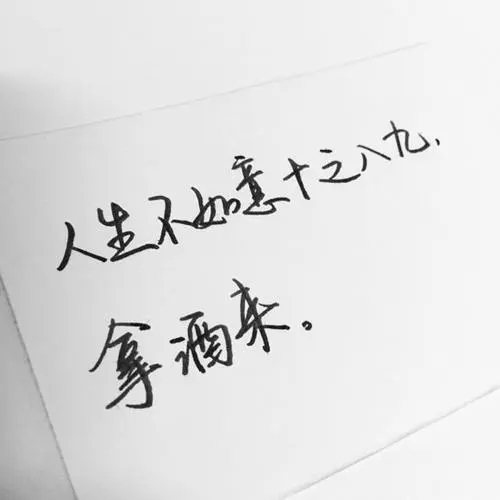 人生不如意十之八九,
拿酒来。